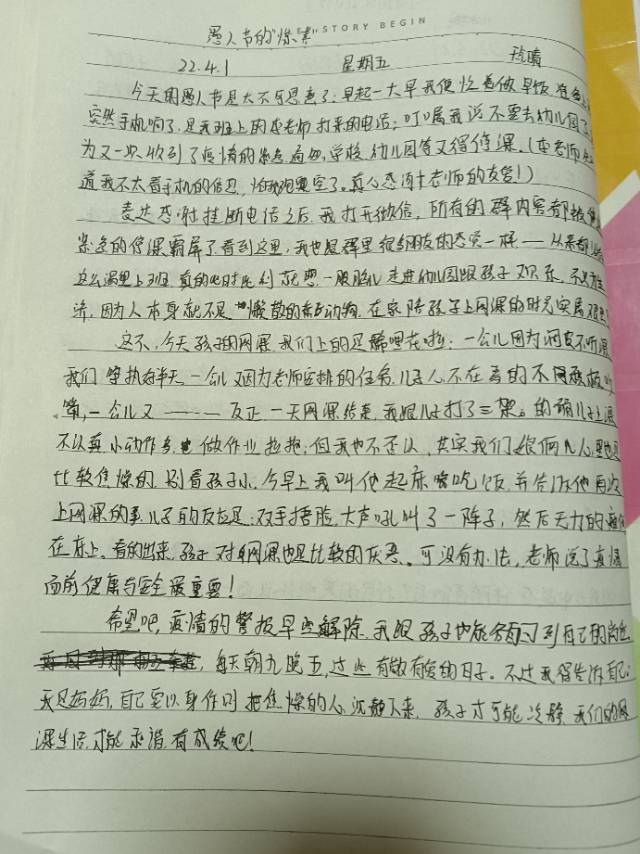 愚人节的"惊"喜" STORY BEGIN
22.4.1 星期五 晴
今天的愚人节是大不可思意了：早起一大早我便忙着做早饭,准备上
突然手机响了.是我班上的老师打来的电话；叮嘱我说不要去幼儿园了
为又一次收到了疫情的 通知,学校 幼儿园等又得停课.(李老师
道我不太看手机的信息 怕我跑空了.真心感谢老师的友善!)
表达感谢挂断电话之后.我打开微信,所有的群内容都被
紧急的停课霸屏了.看到这里,我也是群里很多朋友的感觉一样——从
这么渴望上班 真的此时此刻 就想一股脑儿走进幼儿园跟孩子欢乐,
活,因为人本身就不是懒散的 动物,在家陪孩子上网课的时光实属
这不,今天孩子的网课 我们上的是稀哩花啦：一会儿因为调皮不听课
我们争执好半天 一会儿又因为老师安排的任务.儿子人不在
第,一会儿又—— 反正一天网课结束,我跟儿子打了三架。的确儿子上课
不认真.小动作多 做作业拉拖.但我也不否认,其实我们娘俩儿人
比较焦燥的.别看孩子小.今早上我叫他起床吃饭.并告诉他再次
上网课的事.儿子的反应是：双手捂脸.大声吼叫了一阵子,然后无力的
在床上。看的出来.孩子对网课也是比较的厌恶。可没有办法,老师说了疫情
面前健康与安全最重要!
希望吧,疫情的警报早些解除.我跟孩子也能各自回到自己的岗位
每天朝九晚五,过些有效有爱的日子。不过我得告诉自己：
我是妈妈,自己要以身作则 把焦燥的人沉静下来,孩子才可能冷静.我们的网
课生活才能和谐.有成绩吧!